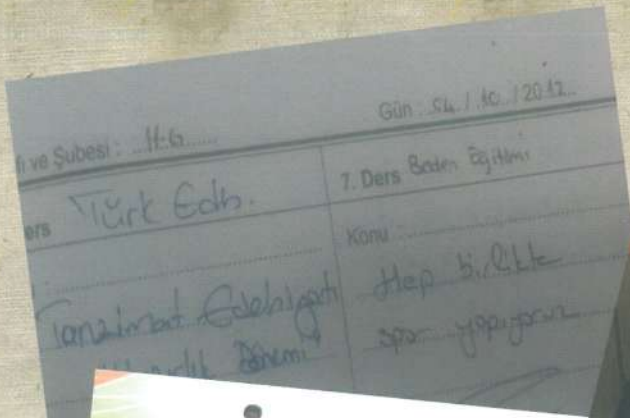 Gün : 04 / 10 / 2012
ı ve Şubesi : 11-G
ers Türk Edb.
7. Ders Beden Eğitimi
Konu :
Tanzimat Edebiyatı
Hazırlık Dönemi
Hep birlikte
spor yapıyoruz